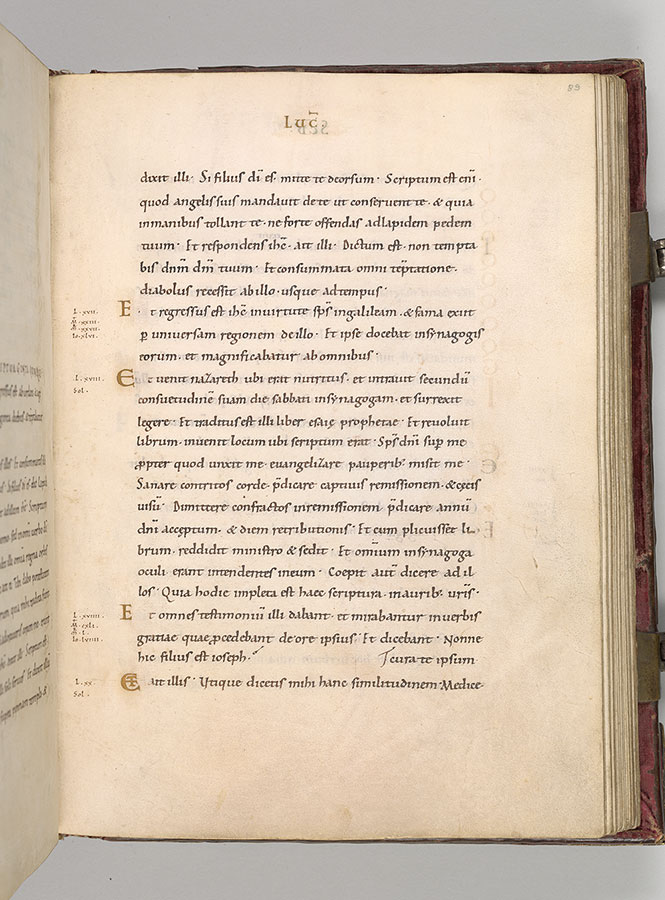 99
Luc̄
dixit illi · Si filius dī es · mitte te deorsum · Scriptum est eni·
quod angelis suis mandavit de te ut conservent te · & quia
in manibus tollant te · ne forte offendas ad lapidem pedem
tuum · Et respondens ihc̄ · ait illi · Dictum est · non tempta
bis dnm̄ dm̄ tuum · Et consummata omni tēptatione ·
diabolus recessit ab illo · usque ad tempus ·
L · xvii · Et regressus est ihc̄ in virtute sps̄ in galileam · & fama exiit
p̱ universam regionem de illo · Et ipse docebat in synagogis
eorum · et magnificabatur ab omnibus ·
L · xviii · Et venit nazareth · ubi erat nutritus · et intravit secundū
Sol · consuetudinē suam die sabbati in synagogam · et surrexit
legere · Et traditus est illi liber esaię prophetae · Et revolvit
librum · invenit locum ubi scriptum erat · Sps̄ dnī sup̱ me
ꝓpter quod unxit me · evangelizare pauperib; misit me ·
Sanare contritos corde · p̄dicare captivis remissionem · & cęcis
visū · Dimittere confractos in remissionem · p̄dicare annū
dnī acceptum · & diem retributionis · Et cum plicuisset li
brum · reddidit ministro & sedit · Et omnium in synagoga
oculi erant intendentes in eum · Coepit aut̄ dicere ad il
los · Quia hodie impleta est haec scriptura · in aurib; vrīs ·
L · xviiii · Et omnes testimoniū illi dabant · et mirabantur in verbis
gratiae quae ꝓcedebant de ore ipsius · Et dicebant · Nonne
hic filius est ioseph · cura te ipsum
L · xx · Et ait illis · Utique dicetis mihi hanc similitudinem · Medice
Sol ·